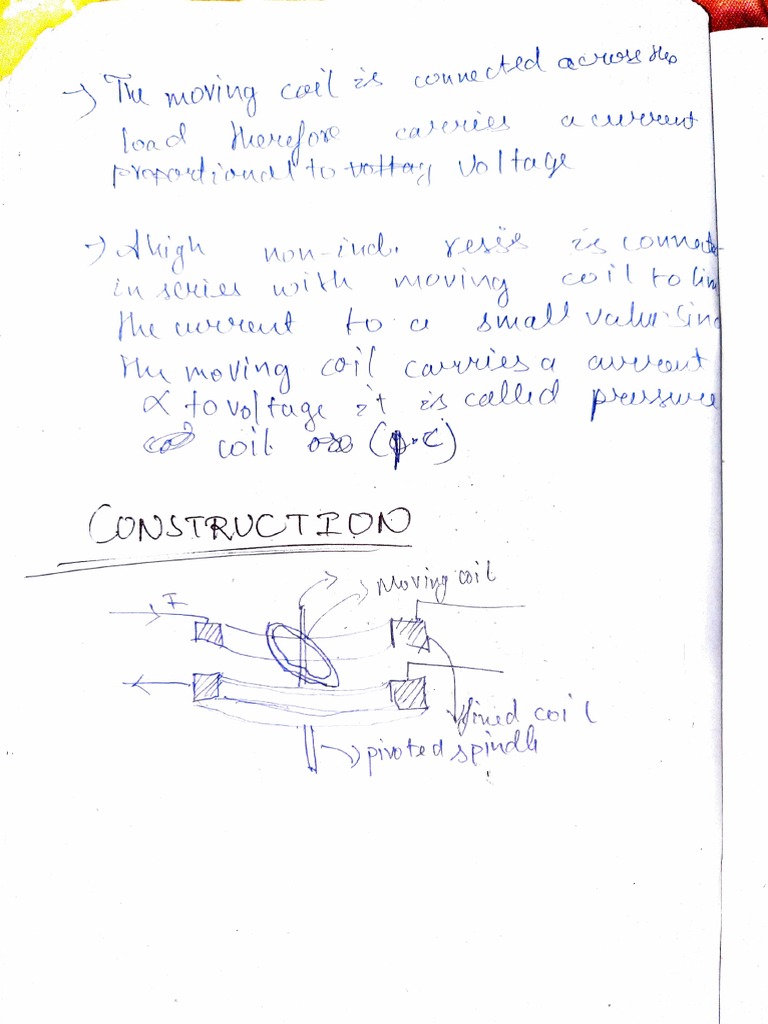 → The moving coil is connected across the
load therefore carries a current
proportional to voltag voltage
→ A high non-ind. resis is connect
in series with moving coil to lim
the current to a small value. Sinc
the moving coil carries a current
∝ to voltage it is called pressure
coil (p.c)
CONSTRUCTION
Moving coil
I
fixed coil
pivoted spindle